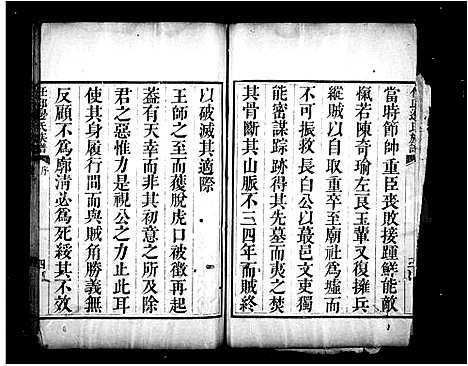 當時節帥重臣喪敗接踵鮮能敵
愾若陳奇瑜左良玉輩又復擁兵
縱賊以自重卒至廟社為墟而
不可振救長白公以蕞邑文吏獨
能密謀踪跡得其先墓而夷之焚
其骨斷其山脈不三四年而賊終
以破滅其適際
王師之至而獲脫虎口被徵再起
葢有天幸而非初意之所及除
君之惡惟力是視公之力止此耳
使其身履行間與賊角勝義無
反顧不為廓清必為死綏其不效
任邱邊氏族譜
序
四